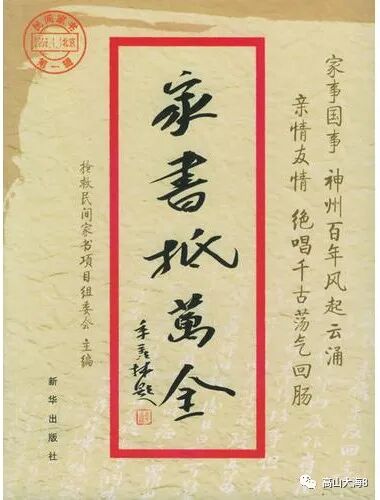 民间家书
北京
第一辑
家事国事 神州百年风起云涌
亲情友情 绝唱千古荡气回肠
家書抵萬金
季羡林题
抢救民间家书項目组委会 主编
新华出版社
高山大海8